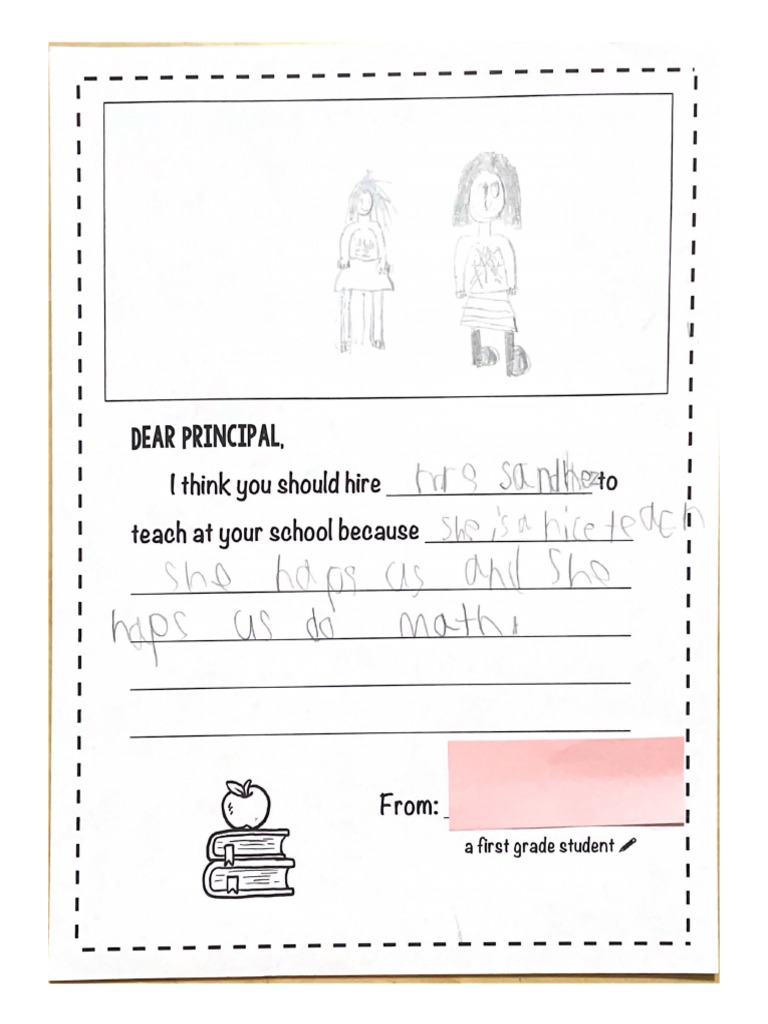 DEAR PRINCIPAL,
I think you should hire mrs sandhez to
teach at your school because she is a nice teach
she haps us and she
haps us do math.
From:
a first grade student